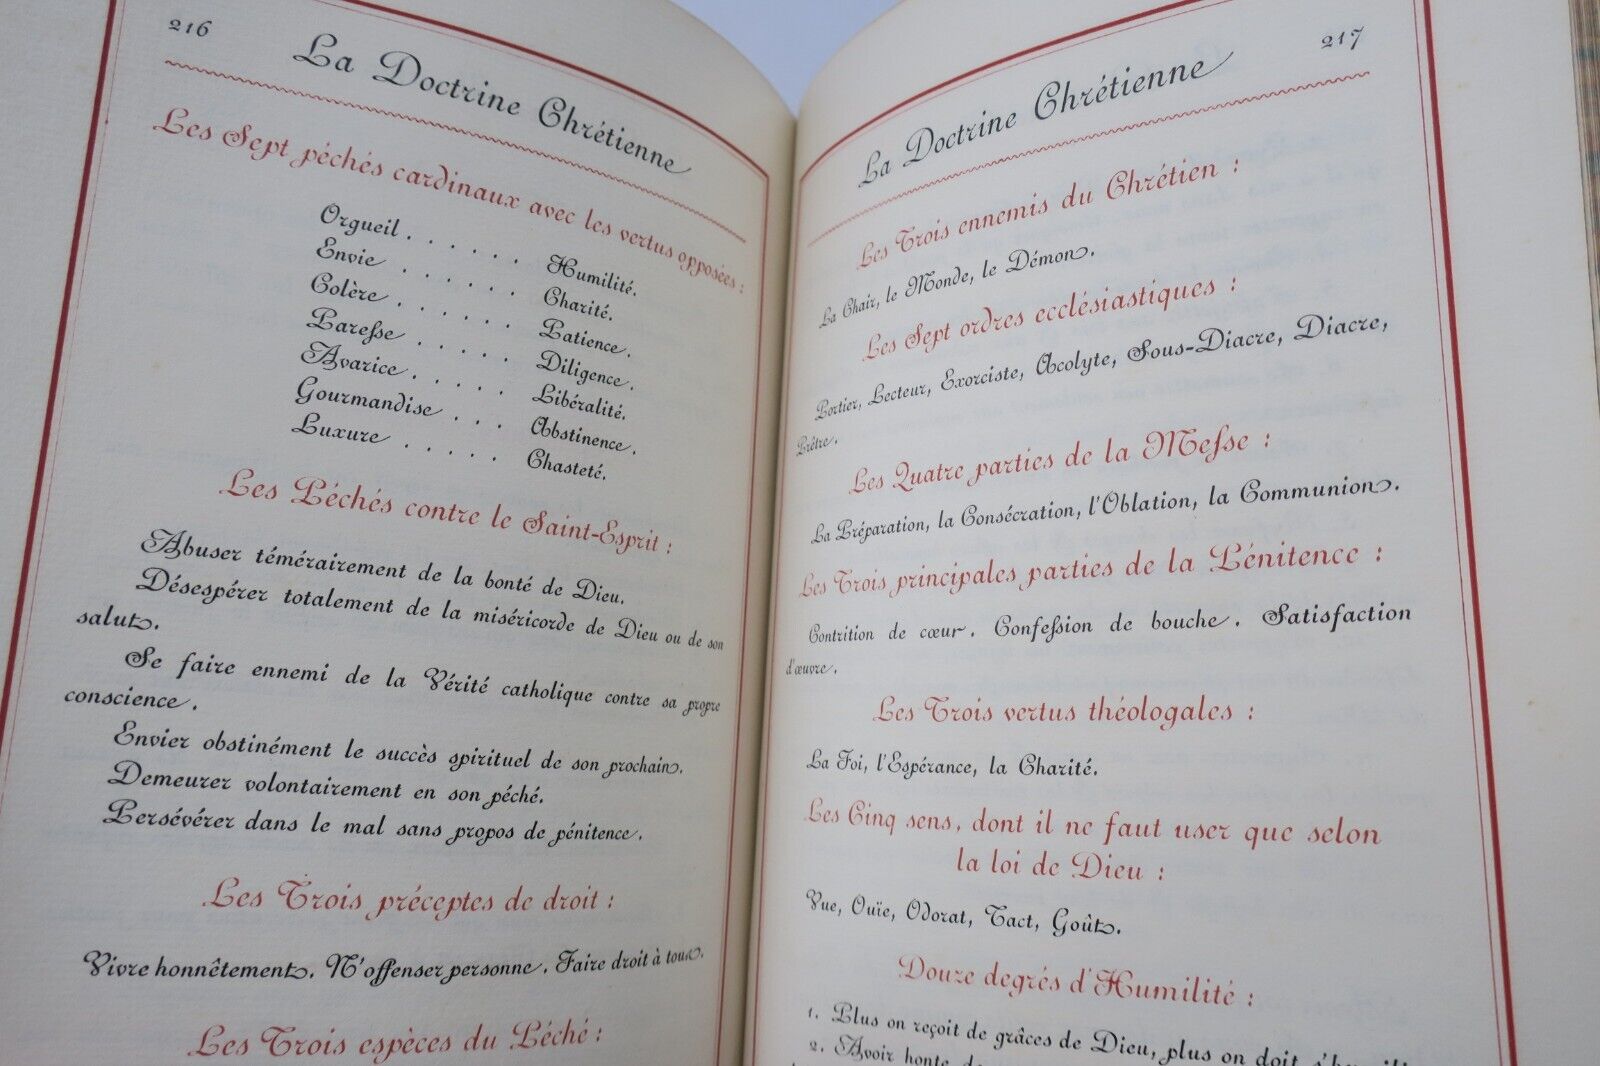 216
La Doctrine Chrétienne
Les Sept péchés cardinaux avec les vertus opposées :
Orgueil . . . . . . Humilité.
Envie . . . . . . Charité.
Colère . . . . . . Patience.
Paresse . . . . . Diligence.
Avarice . . . . . Libéralité.
Gourmandise . . . Abstinence.
Luxure . . . . . Chasteté.
Les Péchés contre le Saint-Esprit :
Abuser témérairement de la bonté de Dieu.
Désespérer totalement de la miséricorde de Dieu ou de son
salut.
Se faire ennemi de la Vérité catholique contre sa propre
conscience.
Envier obstinément le succès spirituel de son prochain.
Demeurer volontairement en son péché.
Persévérer dans le mal sans propos de pénitence.
Les Trois préceptes de droit :
Vivre honnêtement. N'offenser personne. Faire droit à tous.
Les Trois espèces du Péché :
217
La Doctrine Chrétienne
Les Trois ennemis du Chrétien :
La Chair, le Monde, le Démon.
Les Sept ordres ecclésiastiques :
Portier, Lecteur, Exorciste, Acolyte, Sous-Diacre, Diacre,
Prêtre.
Les Quatre parties de la Messe :
La Préparation, la Consécration, l'Oblation, la Communion.
Les Trois principales parties de la Pénitence :
Contrition de cœur. Confession de bouche. Satisfaction
d'œuvre.
Les Trois vertus théologales :
La Foi, l'Espérance, la Charité.
Les Cinq sens, dont il ne faut user que selon
la loi de Dieu :
Vue, Ouïe, Odorat, Tact, Goût.
Douze degrés d'Humilité :
1. Plus on reçoit de grâces de Dieu, plus on doit
2. Avoir honte